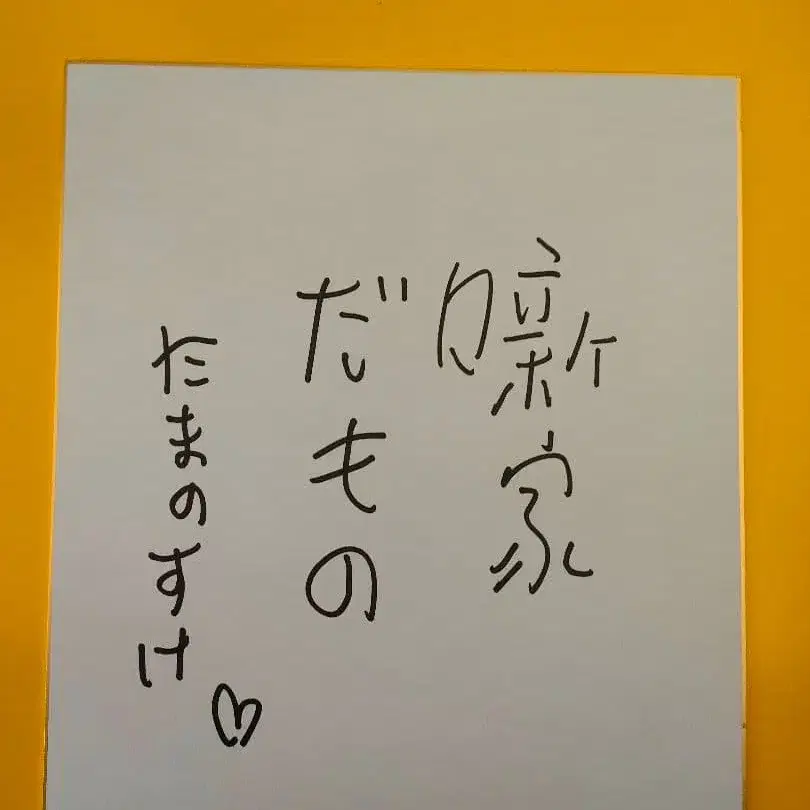 噺家
だもの
たまのすけ♡